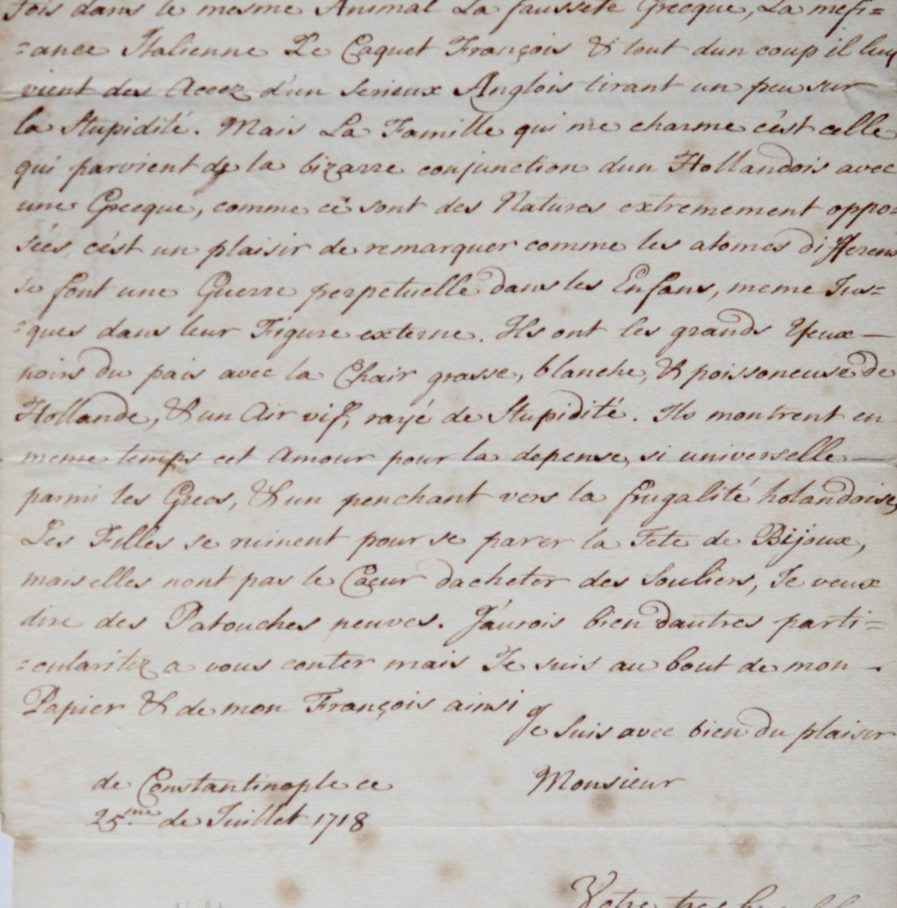 fois dans le mesme Animal La fausseté Grecque, La mefi=
=ance Italienne Le Caquet François & tout dun coup il luy
vient des Accez d'un Serieux Anglois tirant un peu sur
la Stupidité. Mais La Famille qui me charme cést celle
qui parvient de la bizarre conjunction dun Hollandois avec
une Grecque, comme ce sont des Natures extremement oppo=
sées, cést un plaisir de remarquer comme les atomes differens
se font une Guerre perpetuelle dans les Enfans, meme Jus=
=ques dans leur Figure externe. Ils ont les grands Yeux —
noirs du pais avec la Chair grasse, blanche, & poissoneuse de
Hollande, & un Air vif, rayé de Stupidité. Ils montrent en
meme temps cet Amour pour la depense, si universelle —
parmi les Grecs, & un penchant vers la frugalité holandoise,
Les Filles se ruinent pour se parer la Tete de Bijoux,
mais elles nont pas le Cœur dacheter des Souliers, Je veux
dire des Patouches neuves. J'aurois bien dautres parti=
=cularitez a vous conter mais Je suis au bout de mon -
Papier & de mon François ainsi
Je Suis avec bien du plaisir
Monsieur
de Constantinople ce
25me de Juillet 1718
Votre tres